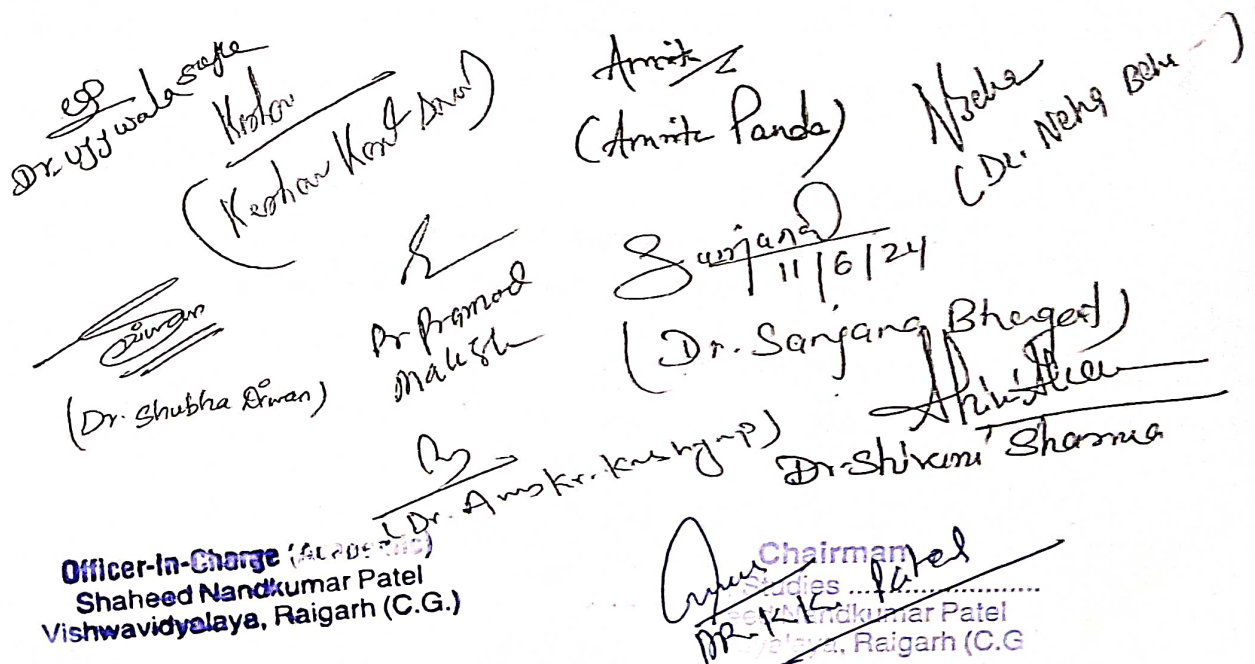 Dr. Ujjwala
Keshav
(Keshav Kant
Amrita
(Amrita Panda)
Neha
(Dr. Neha
Diwan
(Dr. Shubha Diwan)
Dr Pramod
Sanjana
11/6/24
(Dr. Sanjana Bhagat)
Dr. Shivani Sharma
(Dr.
Officer-In-Charge (Academic)
Shaheed Nandkumar Patel
Vishwavidyalaya, Raigarh (C.G.)
Chairman
Studies ....................
Nandkumar Patel
Raigarh (C.G
DR. K.K. Patel